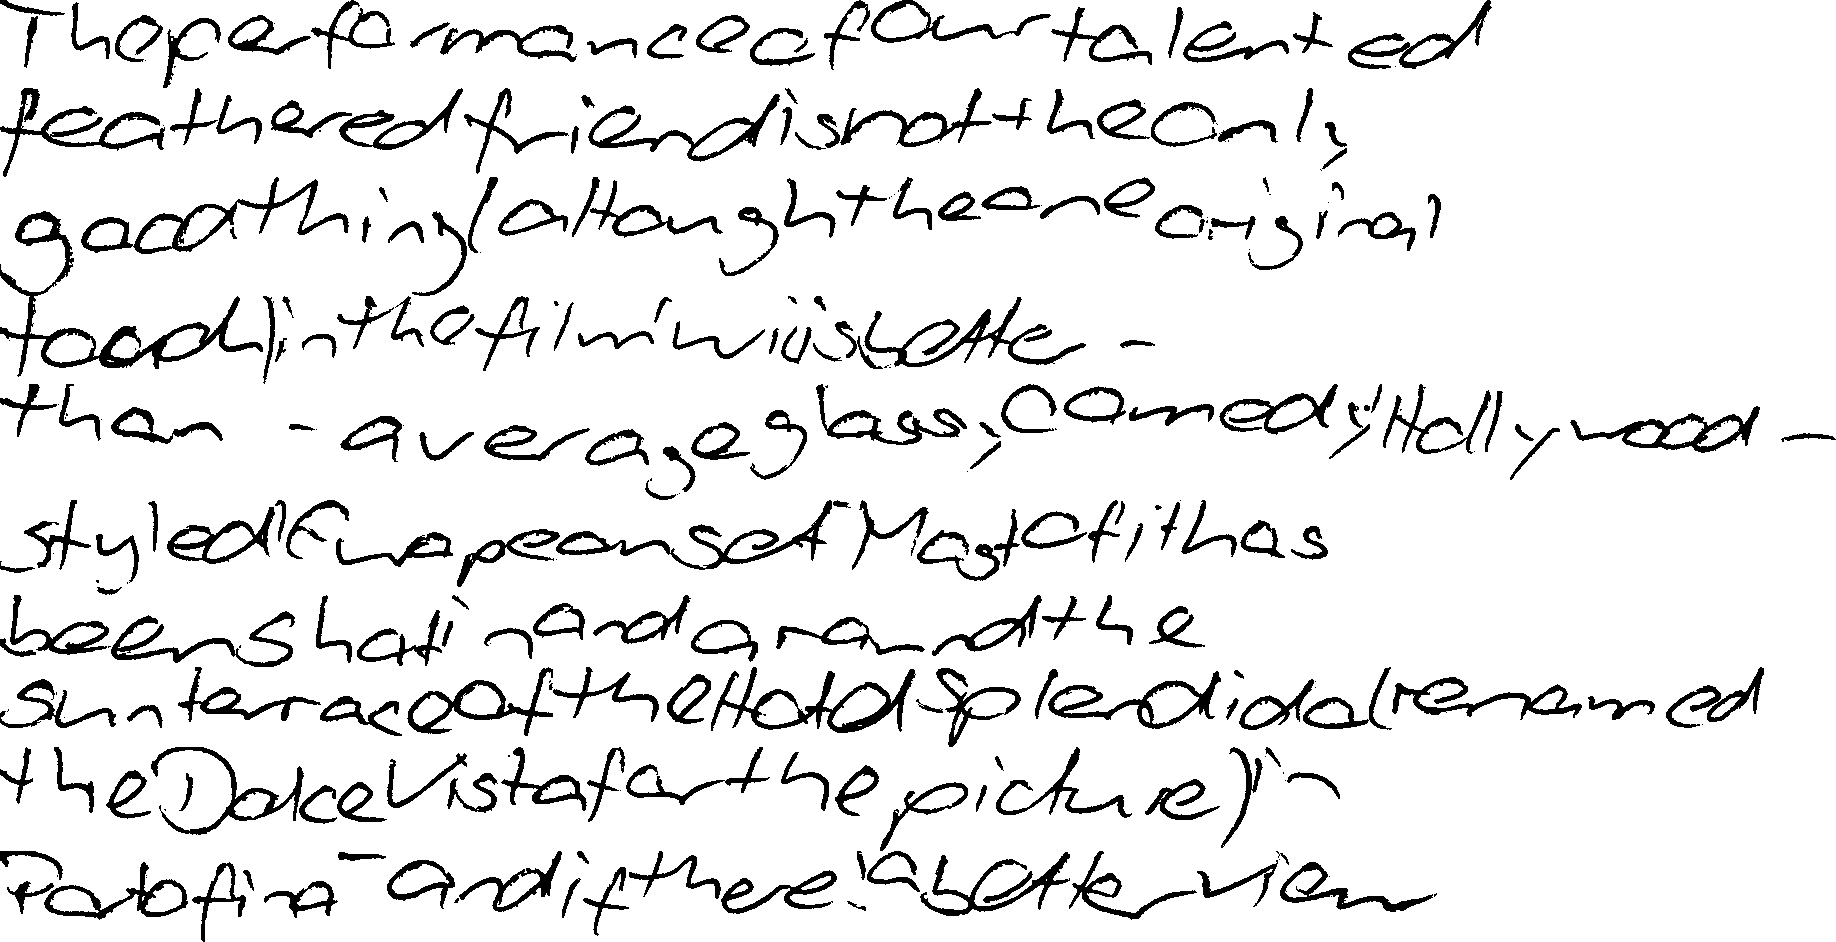 The performance of our talented
feathered friend is not the only
good thing (although the one original
touch) in the film: it is better -
than - average glossy, Comedy; Hollywood -
styled (European set) Most of it has
been shot in and around the
sun terrace of the Hotel Splendido (renamed
the Dolce Vista for the picture) in
Portofino - and if there is a better view